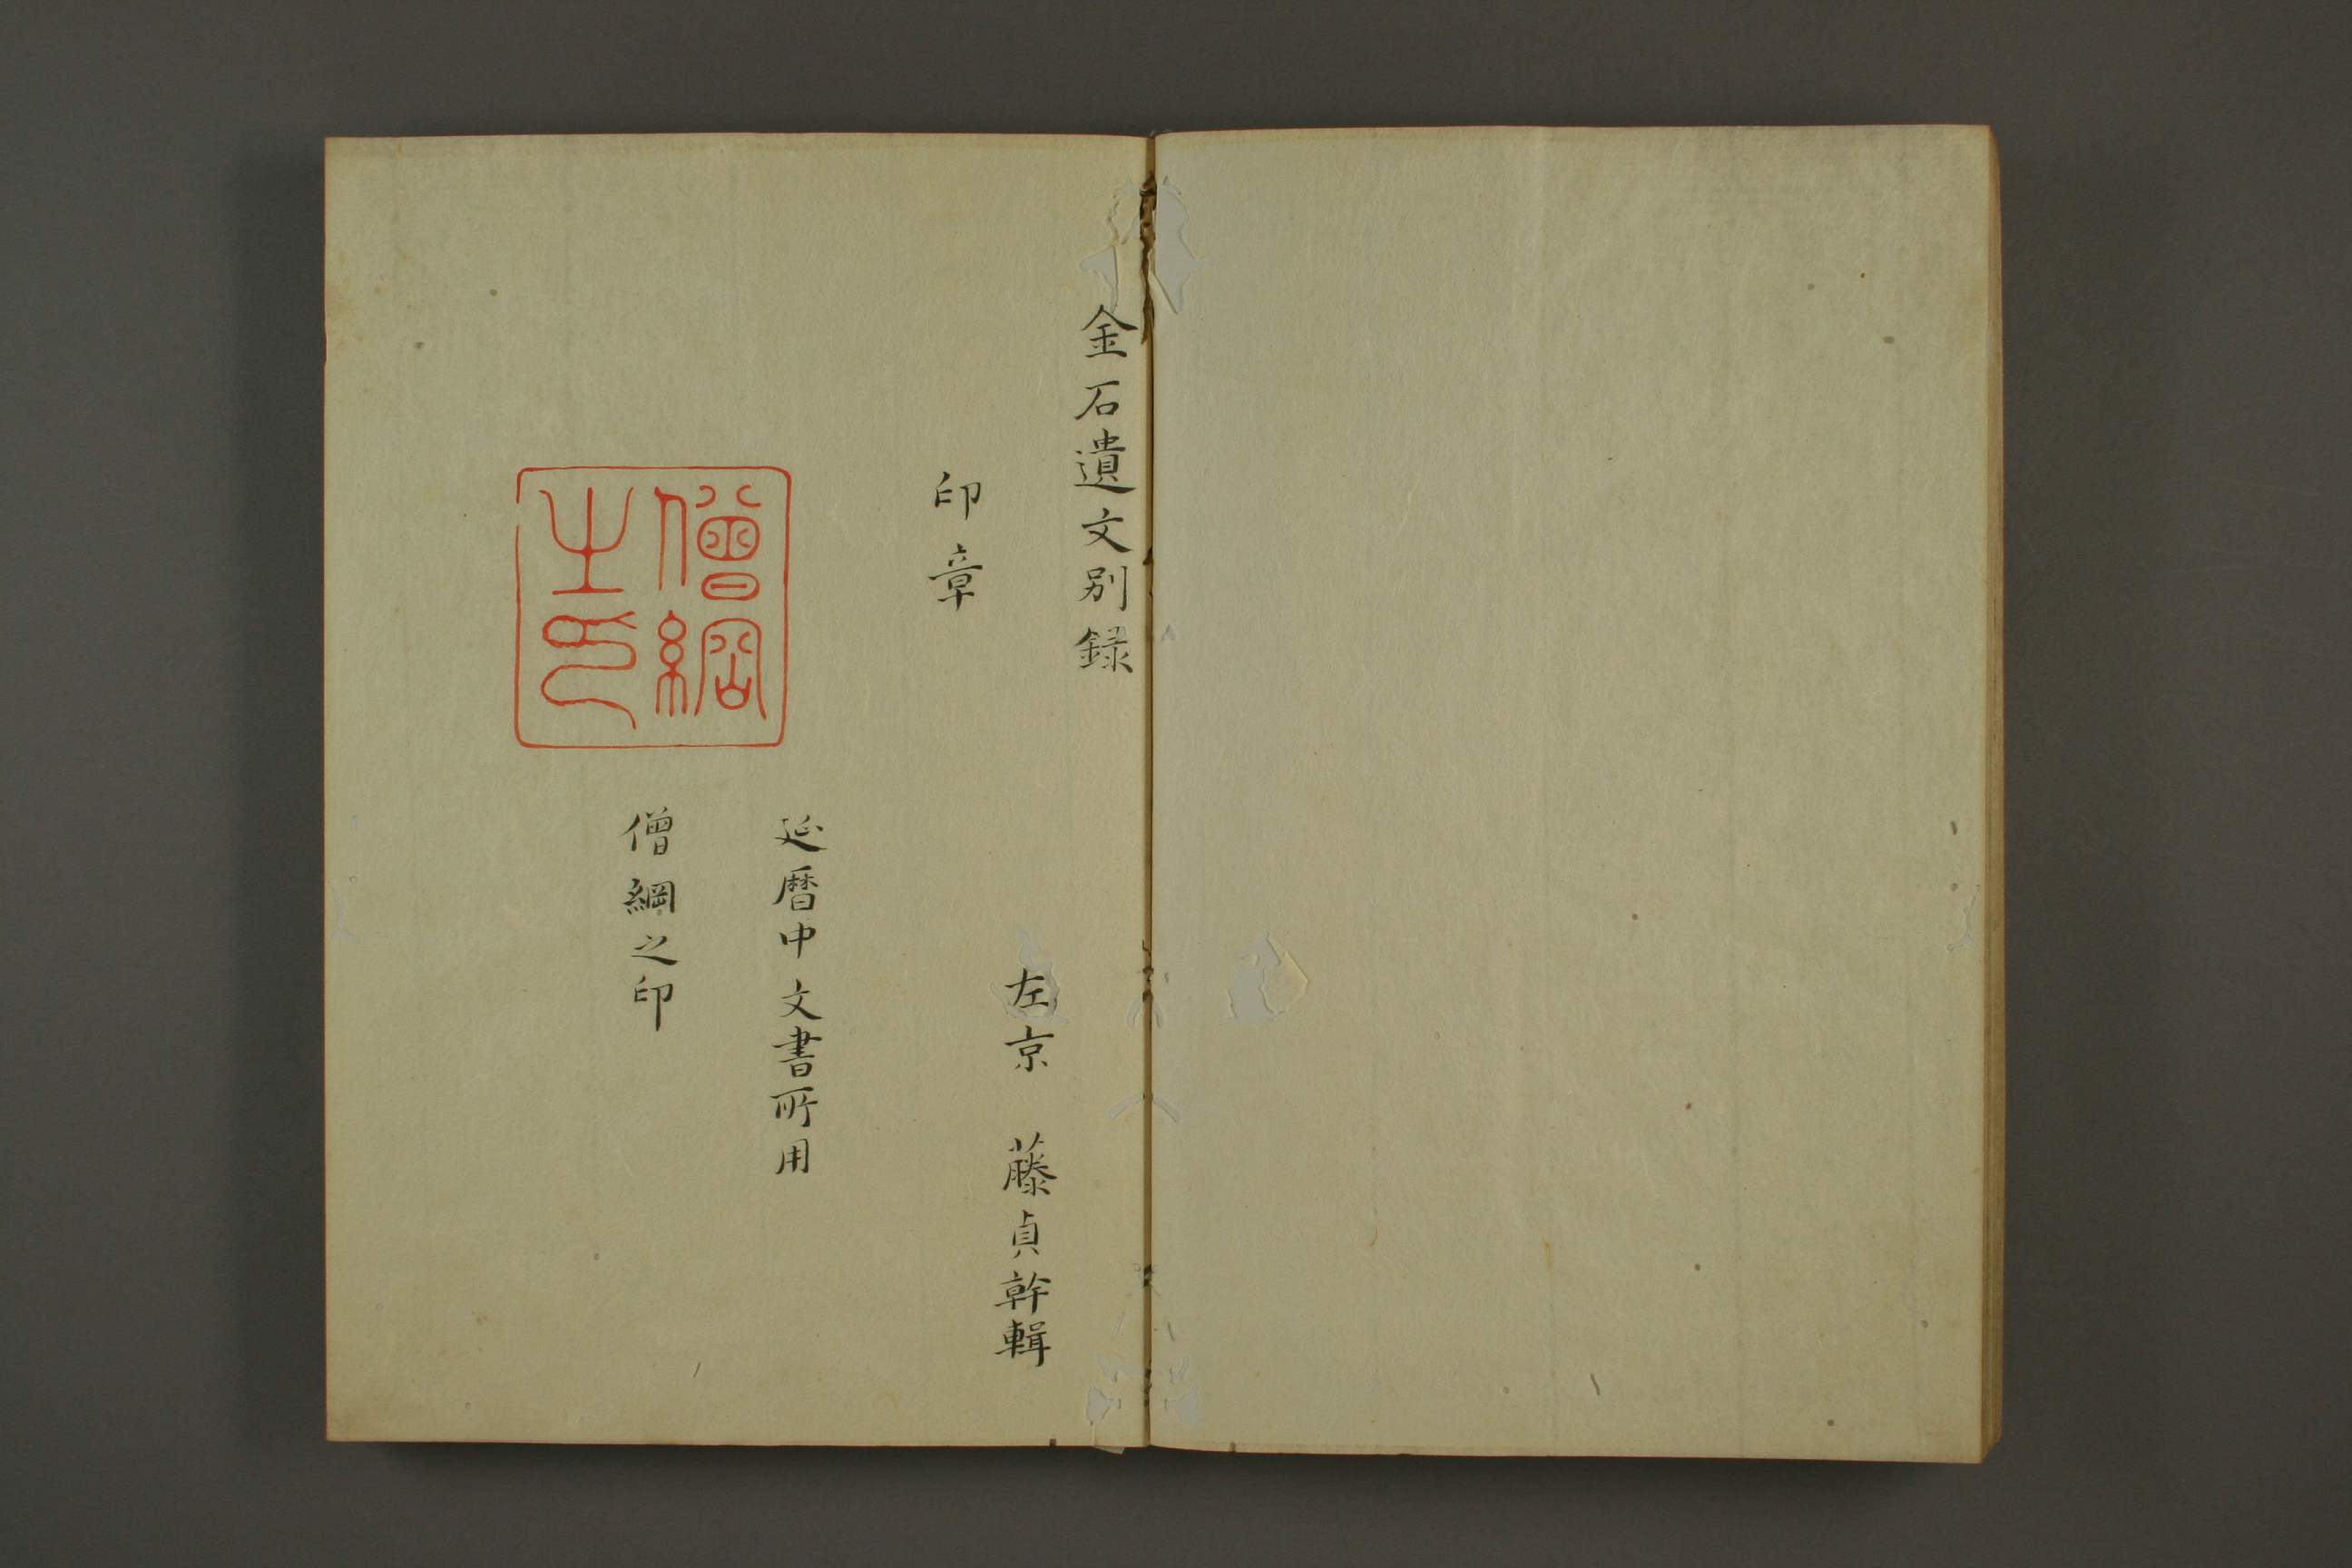 金石遺文別録
左京　藤貞幹輯
印章
延暦中文書所用
僧綱之印
僧綱
之印